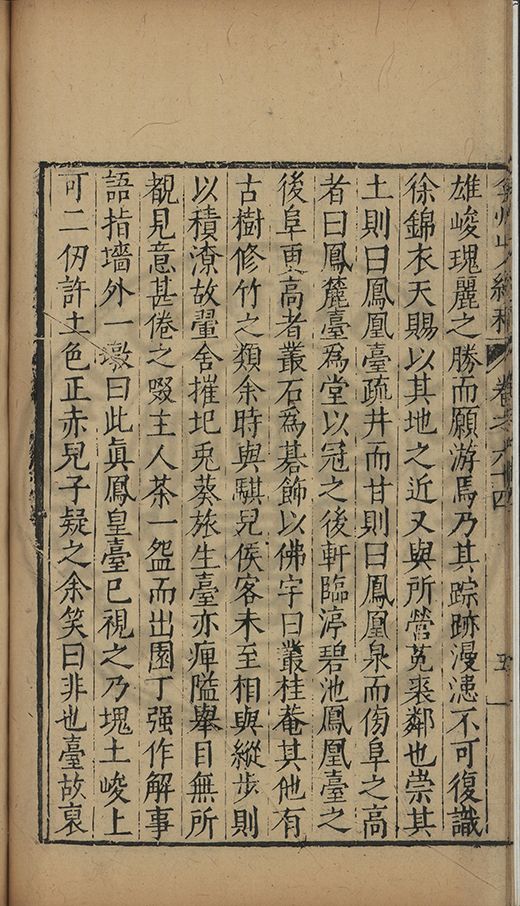 弇州山人續稿 卷之六十四 五
雄峻瑰麗之勝而願游焉乃其踪跡漫漶不可復識
徐錦衣天賜以其地之近又與所營菟裘鄰也崇其
土則曰鳳凰臺疏井而甘則曰鳳凰泉而傍阜之高
者曰鳳麓臺為堂以冠之後軒臨渟碧池鳳凰臺之
後阜更高者叢石為砦飾以佛字曰叢桂菴其他有
古樹修竹之類余時與騏兒侯客未至相與縱步則
以積潦故翬舍摧圮兎葵旅生臺亦痺隘舉目無所
覩見意甚倦之啜主人茶一盌而出園丁强作解事
語指墻外一墩曰此眞鳳皇臺已視之乃塊土峻上
可二仞許土色正赤兒子疑之余笑曰非也臺故裒